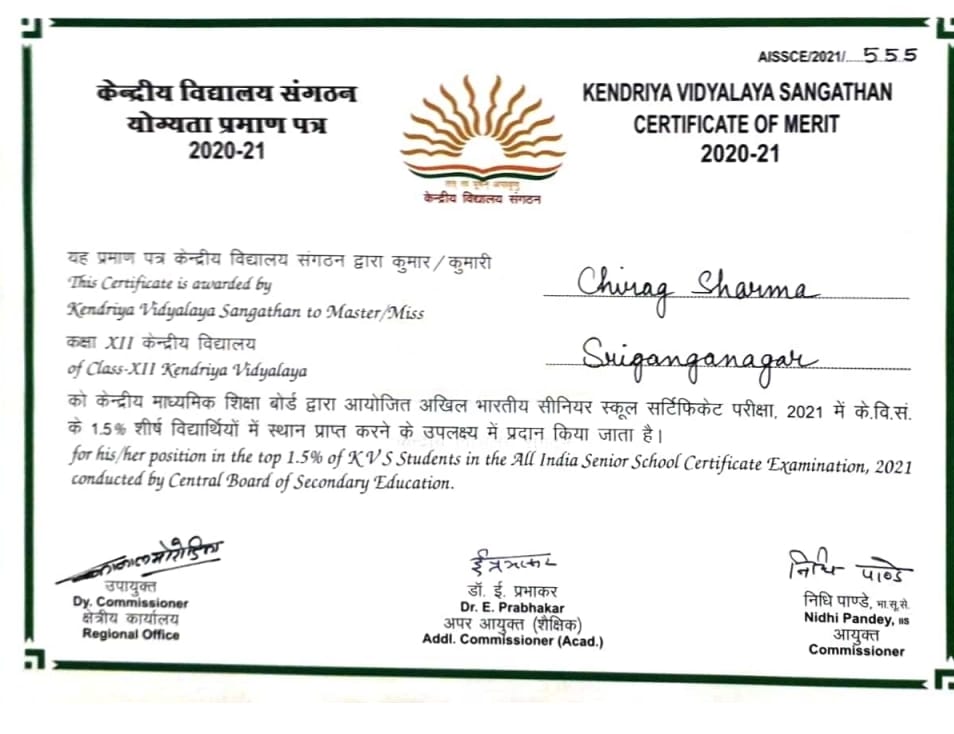 AISSCE/2021/....555
केन्द्रीय विद्यालय संगठन
योग्यता प्रमाण पत्र
2020-21
KENDRIYA VIDYALAYA SANGATHAN
CERTIFICATE OF MERIT
2020-21
केन्द्रीय विद्यालय संगठन
यह प्रमाण पत्र केन्द्रीय विद्यालय संगठन द्वारा कुमार/कुमारी
This Certificate is awarded by
Kendriya Vidyalaya Sangathan to Master/Miss
Chirag Sharma
कक्षा XII केन्द्रीय विद्यालय
of Class-XII Kendriya Vidyalaya
Sriganganagar
को केन्द्रीय माध्यमिक शिक्षा बोर्ड द्वारा आयोजित अखिल भारतीय सीनियर स्कूल सर्टिफिकेट परीक्षा, 2021 में के.वि.सं.
के 1.5% शीर्ष विद्यार्थियों में स्थान प्राप्त करने के उपलक्ष्य में प्रदान किया जाता है।
for his/her position in the top 1.5% of KVS Students in the All India Senior School Certificate Examination, 2021
conducted by Central Board of Secondary Education.
उपायुक्त
Dy. Commissioner
क्षेत्रीय कार्यालय
Regional Office
डॉ. ई. प्रभाकर
Dr. E. Prabhakar
अपर आयुक्त (शैक्षिक)
Addl. Commissioner (Acad.)
निधि पाण्डे
निधि पाण्डे, भा.सू.से.
Nidhi Pandey, IIS
आयुक्त
Commissioner